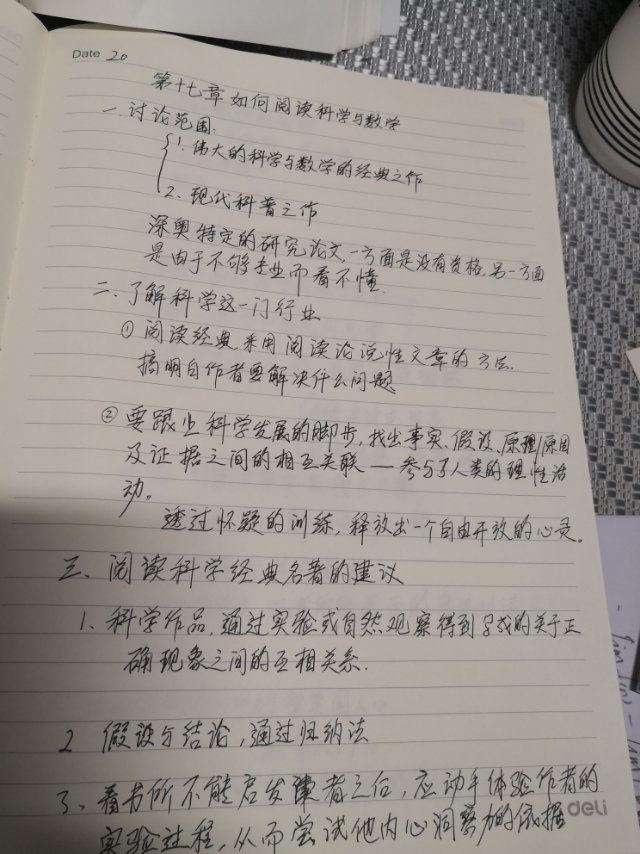 Date 20
第十七章 如何阅读科学与数学
一 讨论范围:
1. 伟大的科学与数学的经典之作
2. 现代科普之作
深奥特定的研究论文,一方面是没有资格,另一方面
是由于不够专业而看不懂.
二、了解科学这一门行业
① 阅读经典采用阅读论说性文章的方法.
搞明白作者要解决什么问题
② 要跟上科学发展的脚步,找出事实、假设、原理/原因
及证据之间的相互关联——参与了人类的理性活
动。
透过怀疑的训练,释放出一个自由开放的心灵。
三、阅读科学经典名著的建议
1、科学作品,通过实验或自然观察得到的关于正
确现象之间的互相关系.
2 假设与结论,通过归纳法
3、看书所不能启发读者之后,应动手体验作者的
实验过程,从而尝试他内心洞察力的依据
deli